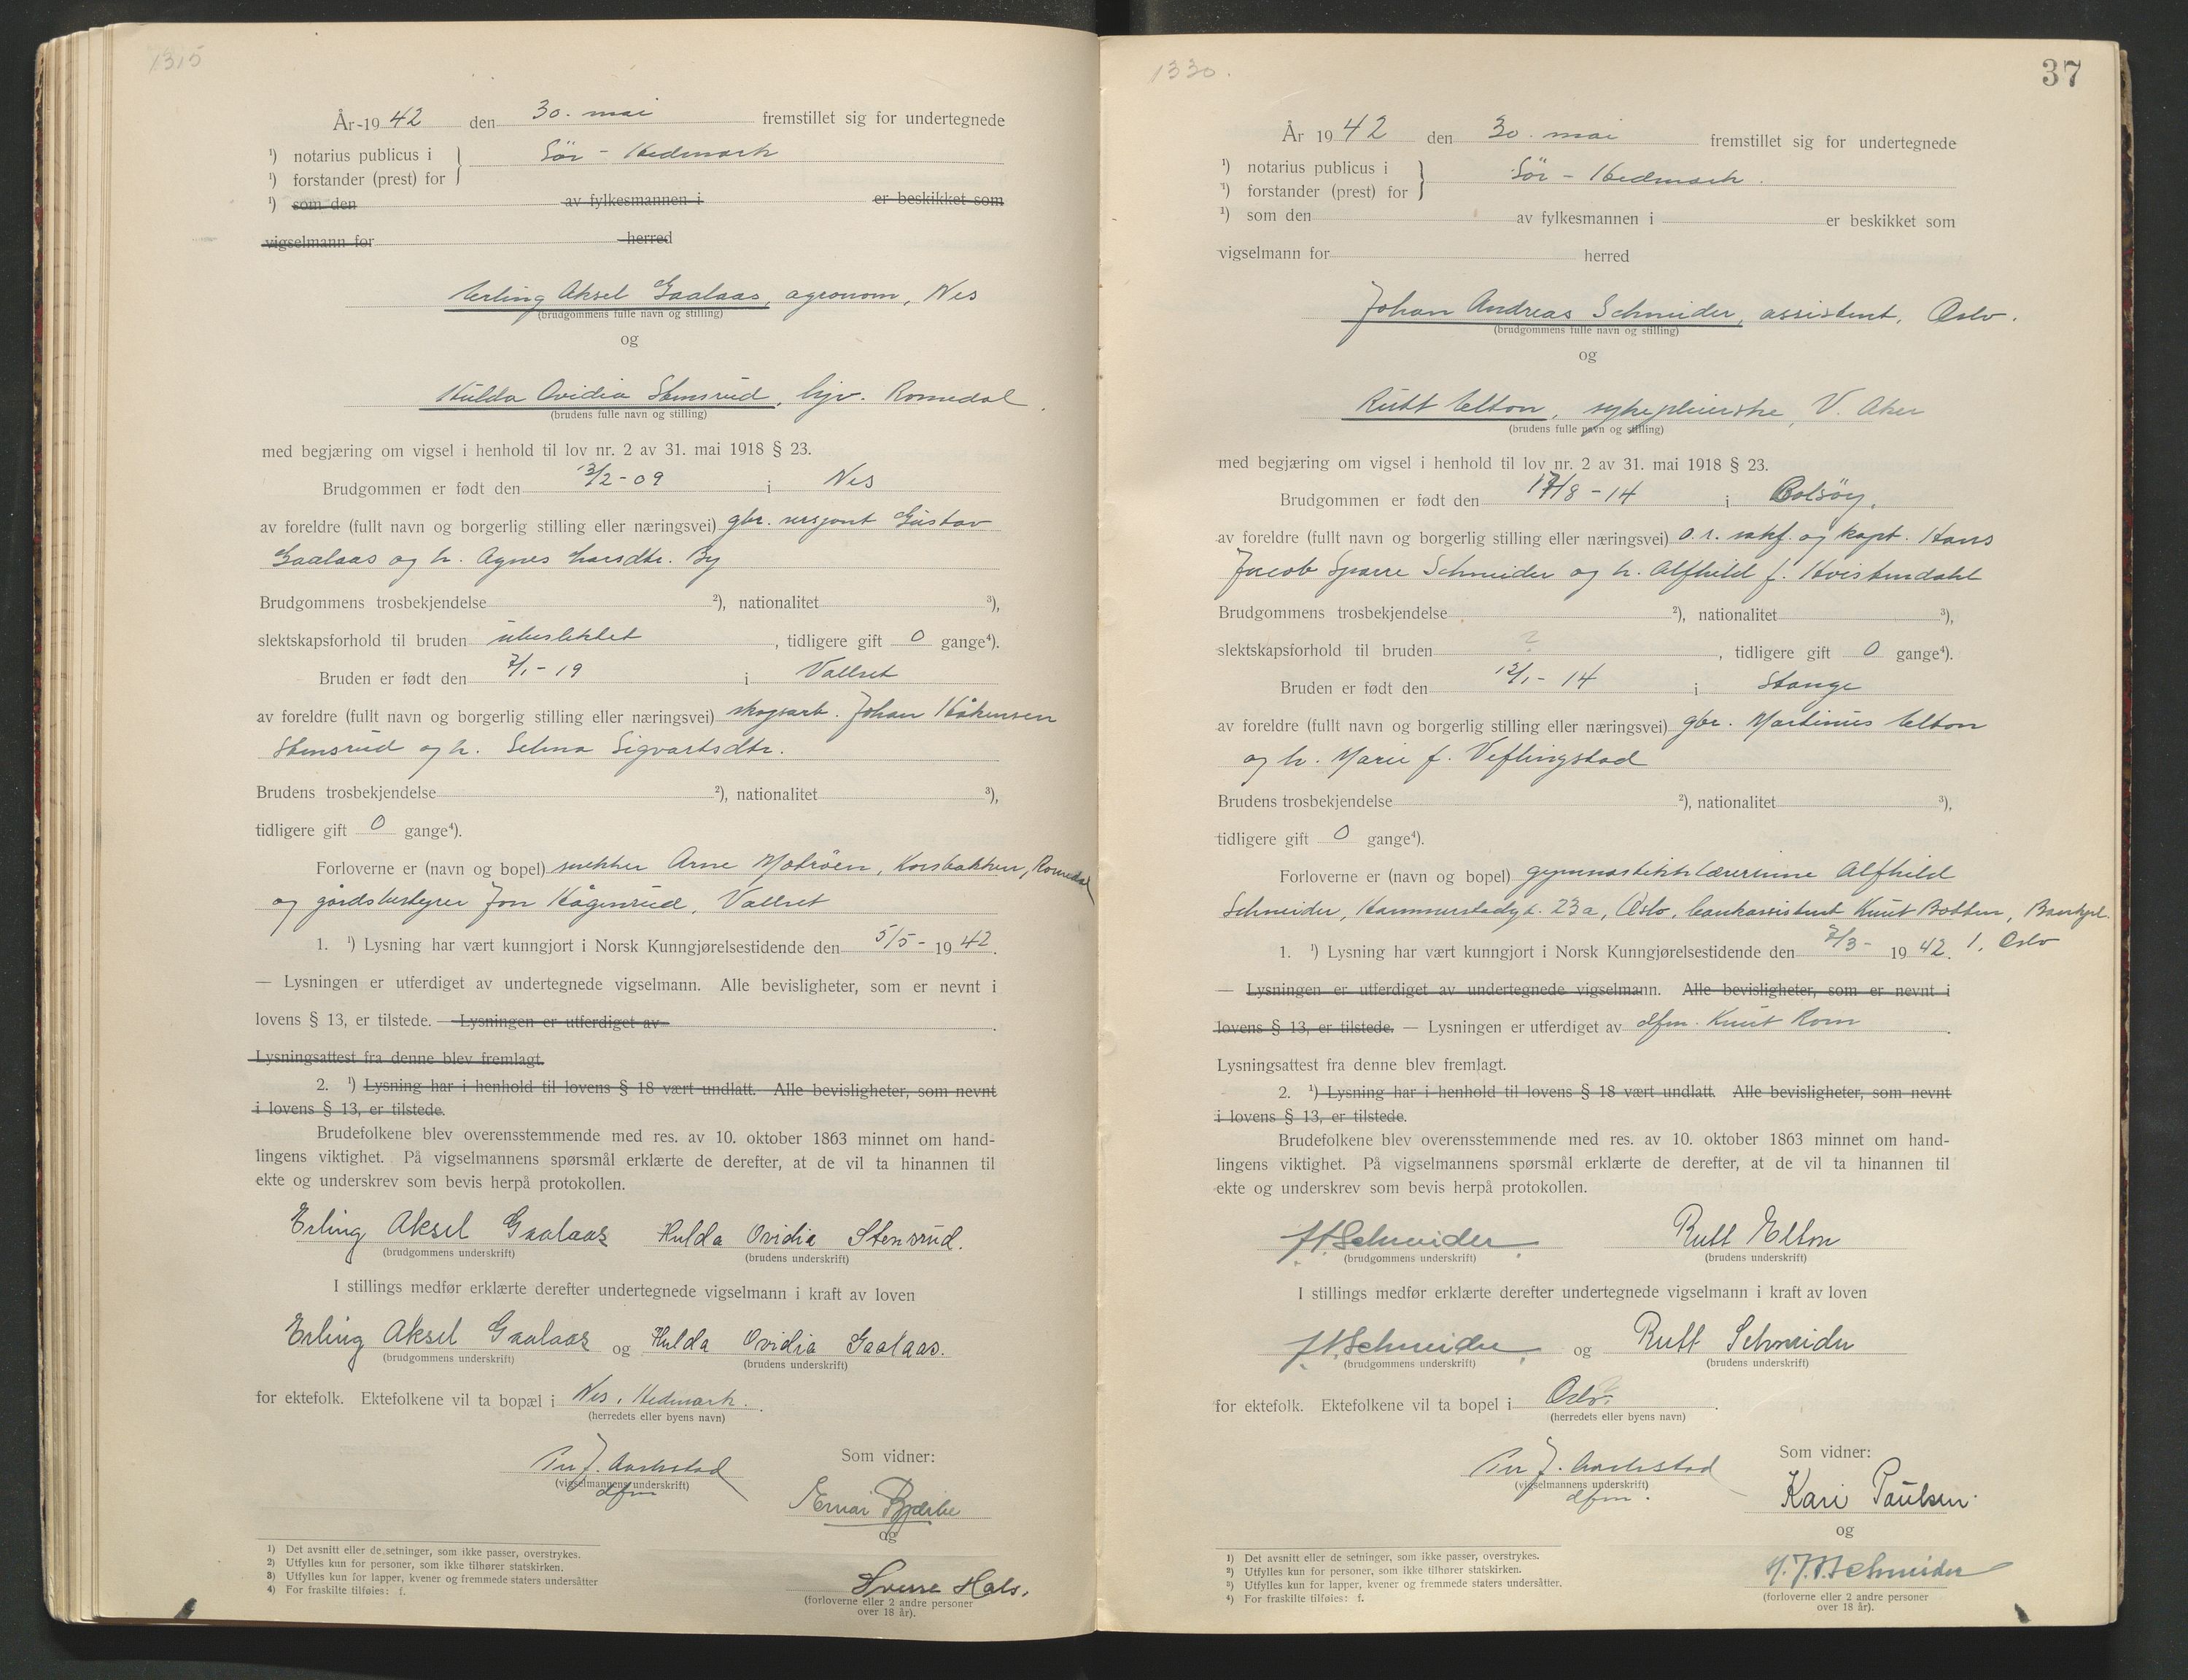 1315
År 1942 den 30. mai fremstillet sig for undertegnede
¹) notarius publicus i
¹) forstander (prest) for } Sör - Hedmark
¹) som den av fylkesmannen i er beskikket som
vigselmann for herred
Erling Aksel Gaalaas, agronom, Nes
(brudgommens fulle navn og stilling)
og
Hulda Ovidia Stensrud, hjv. Romedal
(brudens fulle navn og stilling)
med begjæring om vigsel i henhold til lov nr. 2 av 31. mai 1918 § 23.
Brudgommen er født den 13/2-09 i Nes
av foreldre (fullt navn og borgerlig stilling eller næringsvei) gbr. sersjant Gustav
Gaalaas og h. Agnes Larsdtr. By
Brudgommens trosbekjendelse ²), nationalitet ³),
slektskapsforhold til bruden ubeslektet, tidligere gift 0 gange⁴).
Bruden er født den 7/1-19 i Vallset
av foreldre (fullt navn og borgerlig stilling eller næringsvei) skogsarb. Johan Håkensen
Stensrud og h. Selma Sigvartsdtr.
Brudens trosbekjendelse ²), nationalitet ³),
tidligere gift 0 gange⁴).
Forloverne er (navn og bopel) snekker Arne Moträen, Korsbakken, Romedal
og gårdsbestyrer Jon Hågensrud, Vallset
1. ¹) Lysning har vært kunngjort i Norsk Kunngjørelsestidende den 5/5- 1942.
— Lysningen er utferdiget av undertegnede vigselmann. Alle bevisligheter, som er nevnt i
lovens § 13, er tilstede. — Lysningen er utferdiget av
Lysningsattest fra denne blev fremlagt.
2. ¹) Lysning har i henhold til lovens § 18 vært undlatt. Alle bevisligheter, som nevnt
i lovens § 13, er tilstede.
Brudefolkene blev overensstemmende med res. av 10. oktober 1863 minnet om hand-
lingens viktighet. På vigselmannens spørsmål erklærte de derefter, at de vil ta hinannen til
ekte og underskrev som bevis herpå protokollen.
Erling Aksel Gaalaas Hulda Ovidia Stensrud.
(brudgommens underskrift) (brudens underskrift)
I stillings medfør erklærte derefter undertegnede vigselmann i kraft av loven
Erling Aksel Gaalaas og Hulda Ovidia Gaalaas.
(brudgommens underskrift) (brudens underskrift)
for ektefolk. Ektefolkene vil ta bopæl i Nes, Hedmark.
(herredets eller byens navn)
Per J. Aarkstad
(vigselmannens underskrift)
dfm
Som vidner:
Einar Bjærke
og
Sverre Hals.
(forloverne eller 2 andre personer
over 18 år).
1) Det avsnitt eller de setninger, som ikke passer, overstrykes.
2) Utfylles kun for personer, som ikke tilhører statskirken.
3) Utfylles kun for lapper, kvener og fremmede staters undersåtter
4) For fraskilte tilføies: f.
1330.
37
År 1942 den 30. mai fremstillet sig for undertegnede
¹) notarius publicus i
¹) forstander (prest) for } Sör - Hedmark.
¹) som den av fylkesmannen i er beskikket som
vigselmann for herred
Johan Andreas Schneider, assistent, Oslo.
(brudgommens fulle navn og stilling)
og
Rutt Elton, sykepleierske, V. Aker
(brudens fulle navn og stilling)
med begjæring om vigsel i henhold til lov nr. 2 av 31. mai 1918 § 23.
Brudgommen er født den 17/8-14 i Bolsöy.
av foreldre (fullt navn og borgerlig stilling eller næringsvei) o.r. sakf. og kapt. Hans
Jacob Sparre Schneider og h. Alfhild f. Hvistendahl
Brudgommens trosbekjendelse ²), nationalitet ³),
slektskapsforhold til bruden ?, tidligere gift 0 gange⁴).
Bruden er født den 12/1-14 i Stange
av foreldre (fullt navn og borgerlig stilling eller næringsvei) gbr. Martinius Elton
og h. Marie f. Veflingstad
Brudens trosbekjendelse ²), nationalitet ³),
tidligere gift 0 gange⁴).
Forloverne er (navn og bopel) gymnastikklærerinne Alfhild
Schneider, Hammerstadgt. 23a, Oslo, bankassistent Knut Botten, Bankpl.
1. ¹) Lysning har vært kunngjort i Norsk Kunngjørelsestidende den 7/3- 1942. 1, Oslo
— Lysningen er utferdiget av undertegnede vigselmann. Alle bevisligheter, som er nevnt i
lovens § 13, er tilstede. — Lysningen er utferdiget av dfm. Knut Rom
Lysningsattest fra denne blev fremlagt.
2. ¹) Lysning har i henhold til lovens § 18 vært undlatt. Alle bevisligheter, som nevnt
i lovens § 13, er tilstede.
Brudefolkene blev overensstemmende med res. av 10. oktober 1863 minnet om hand-
lingens viktighet. På vigselmannens spørsmål erklærte de derefter, at de vil ta hinannen til
ekte og underskrev som bevis herpå protokollen.
J.A. Schneider Rutt Elton
(brudgommens underskrift) (brudens underskrift)
I stillings medfør erklærte derefter undertegnede vigselmann i kraft av loven
J.A. Schneider og Rutt Schneider
(brudgommens underskrift) (brudens underskrift)
for ektefolk. Ektefolkene vil ta bopel i Oslo.
(herredets eller byens navn)
Per J. Aarkstad
(vigselmannens underskrift)
dfm.
Som vidner:
Kari Paulsen.
og
H.J.S. Schneider
(forloverne eller 2 andre personer
over 18 år).
¹) Det avsnitt eller de setninger, som ikke passer, overstrykes.
²) Utfylles kun for personer, som ikke tilhører statskirken.
³) Utfylles kun for lapper, kvener og fremmede staters undersåtter.
⁴) For fraskilte tilføies: f.